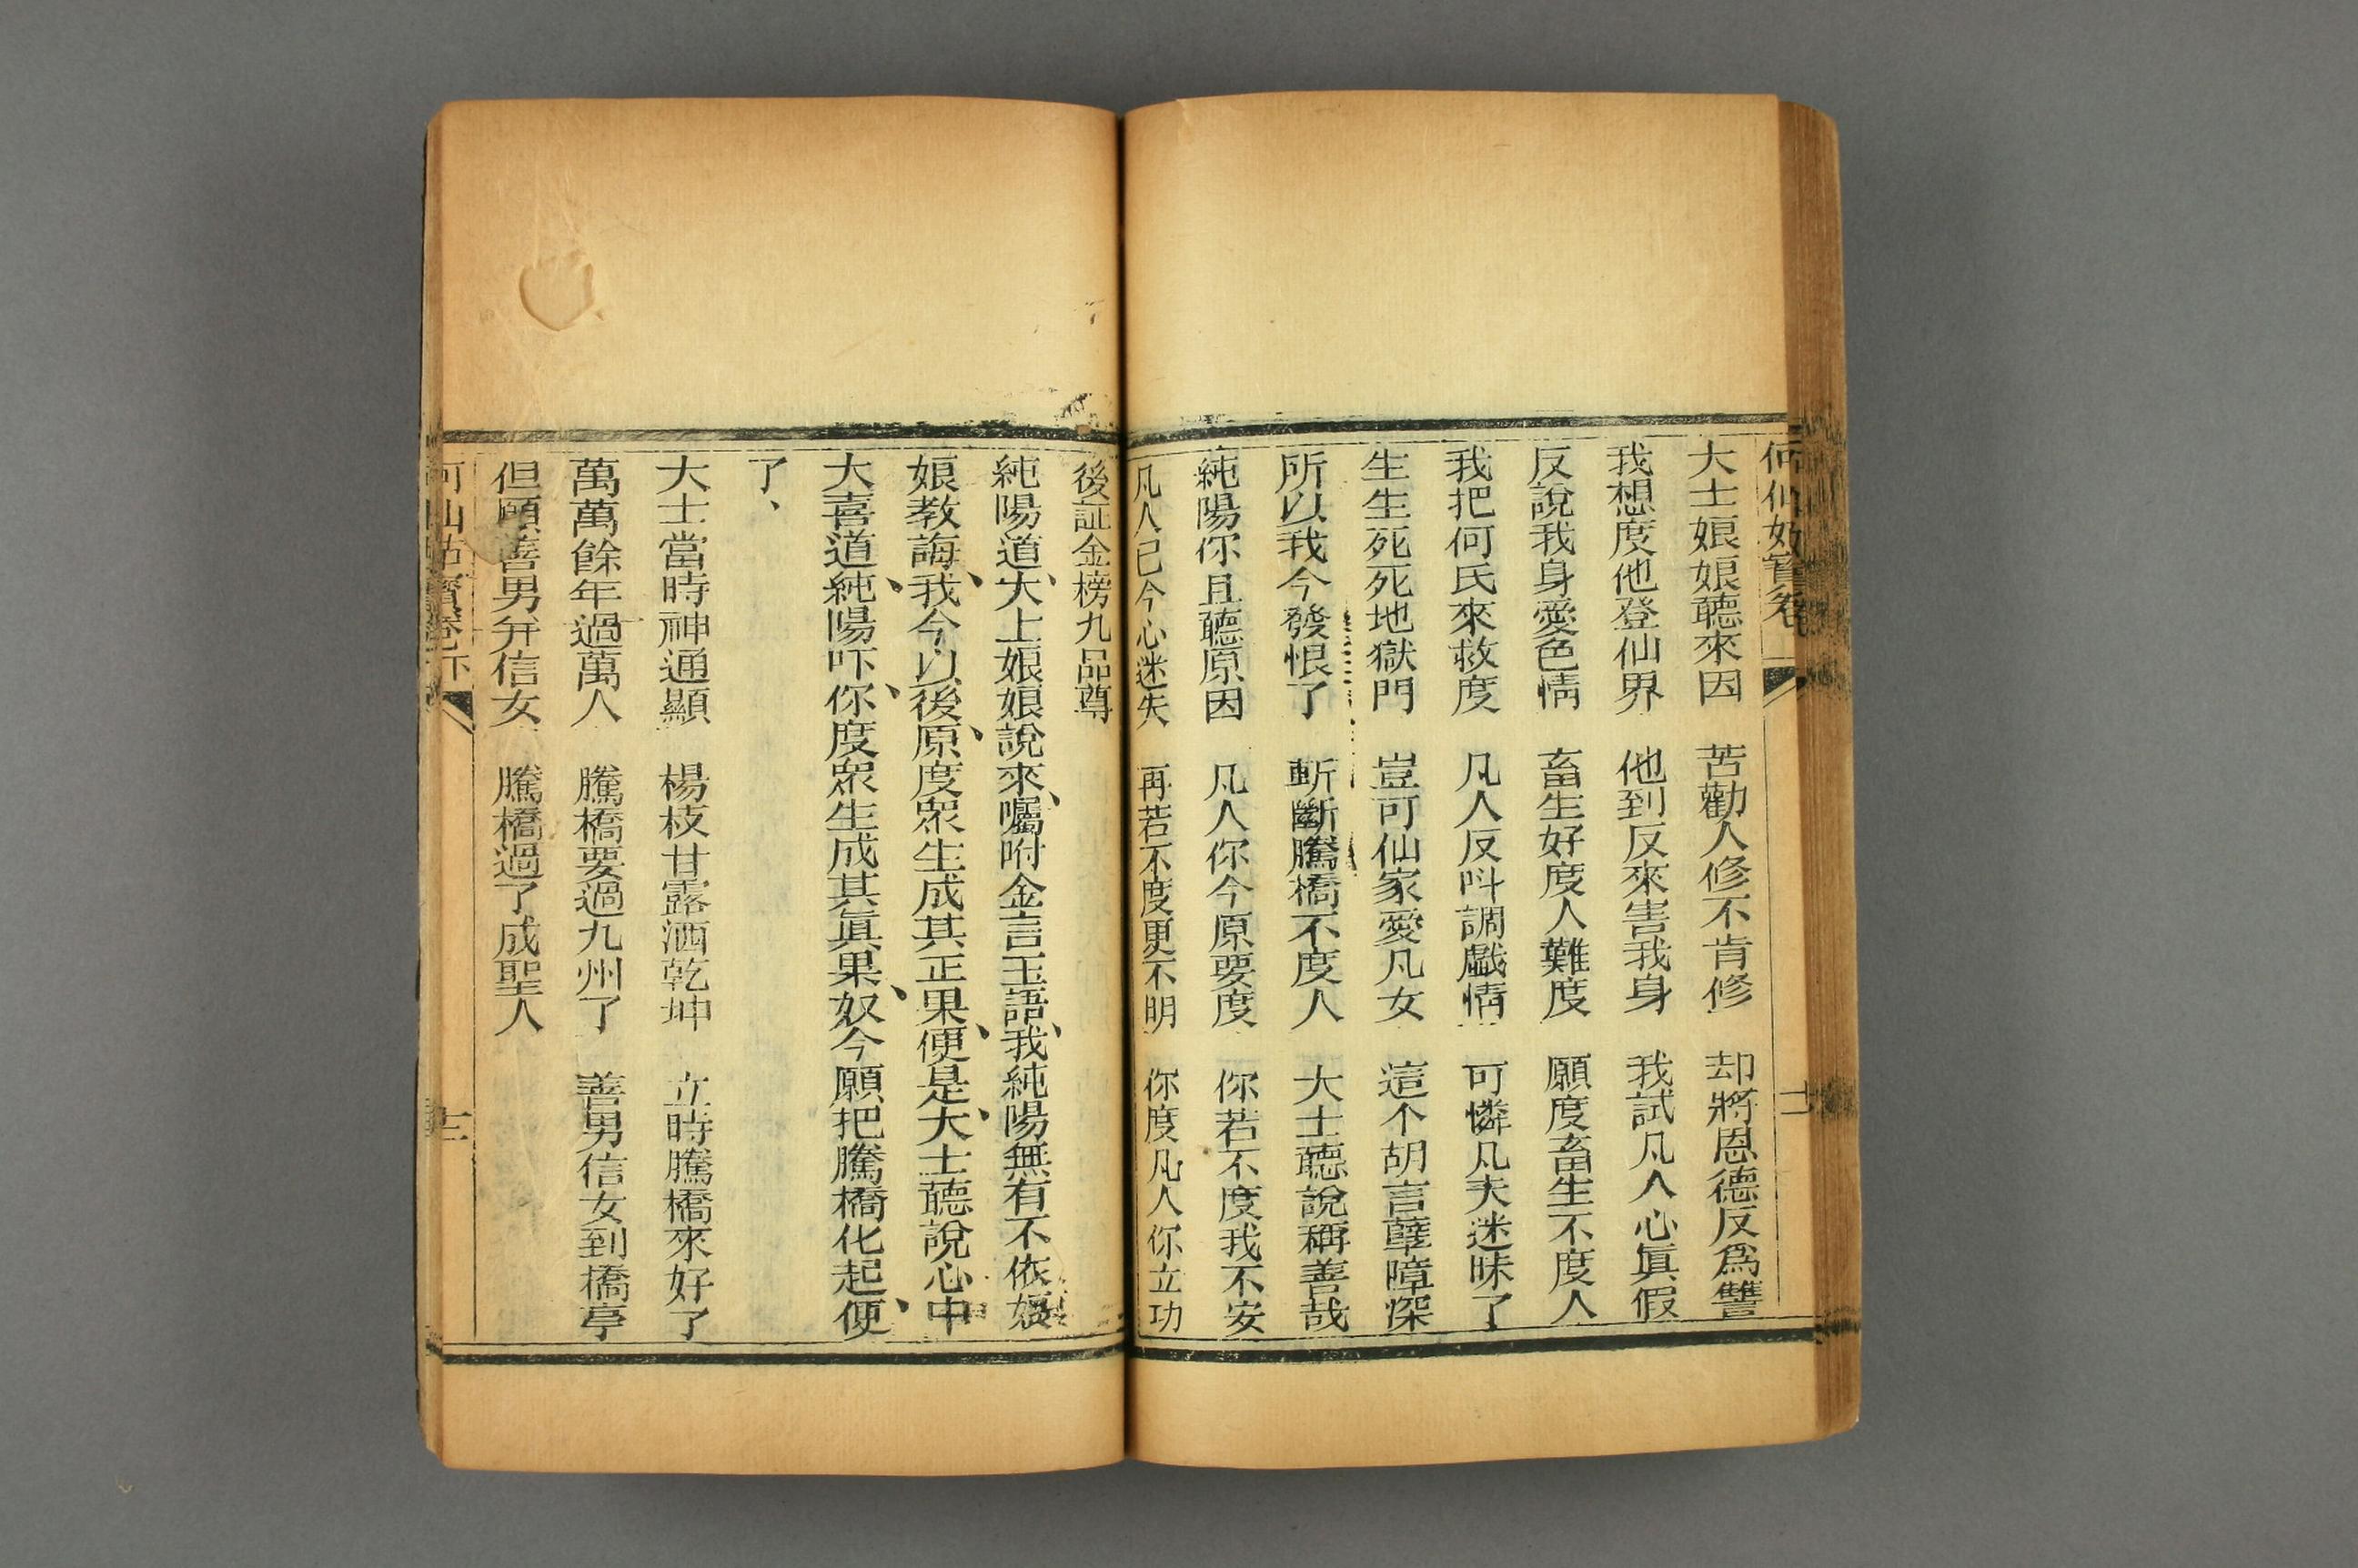 何仙姑寳卷 十二
大士娘娘聽來因 苦勸人修不肯修 却將恩德反爲讐
我想度他登仙界 他到反來害我身 我試凡人心眞假
反說我身愛色情 畜生好度人難度 願度畜生不度人
我把何氏來救度 凡人反呌調戲情 可憐凡夫迷昧了
生生死死地獄門 豈可仙家愛凡女 這个胡言孽障深
所以我今發恨了 斬斷騰橋不度人 大士聽說稱善哉
純陽你且聽原因 凡人你今原要度 你若不度我不安
凡人已今心迷失 再若不度更不明 你度凡人你立功
後証金榜九品尊
純陽道、大上娘娘說來、囑咐金言玉語、我純陽無有不依、娘
娘教誨、我今以後、原度衆生成其正果、便是、大士聽說心中
大喜道、純陽吓、你度衆生成其眞果、奴今願把騰橋化起、便
了、
大士當時神通顯 楊枝甘露洒乾坤 立時騰橋來好了
萬萬餘年過萬人 騰橋要過九州了 善男信女到橋亭
但願善男并信女 騰橋過了成聖人
何仙姑寳卷下 十二